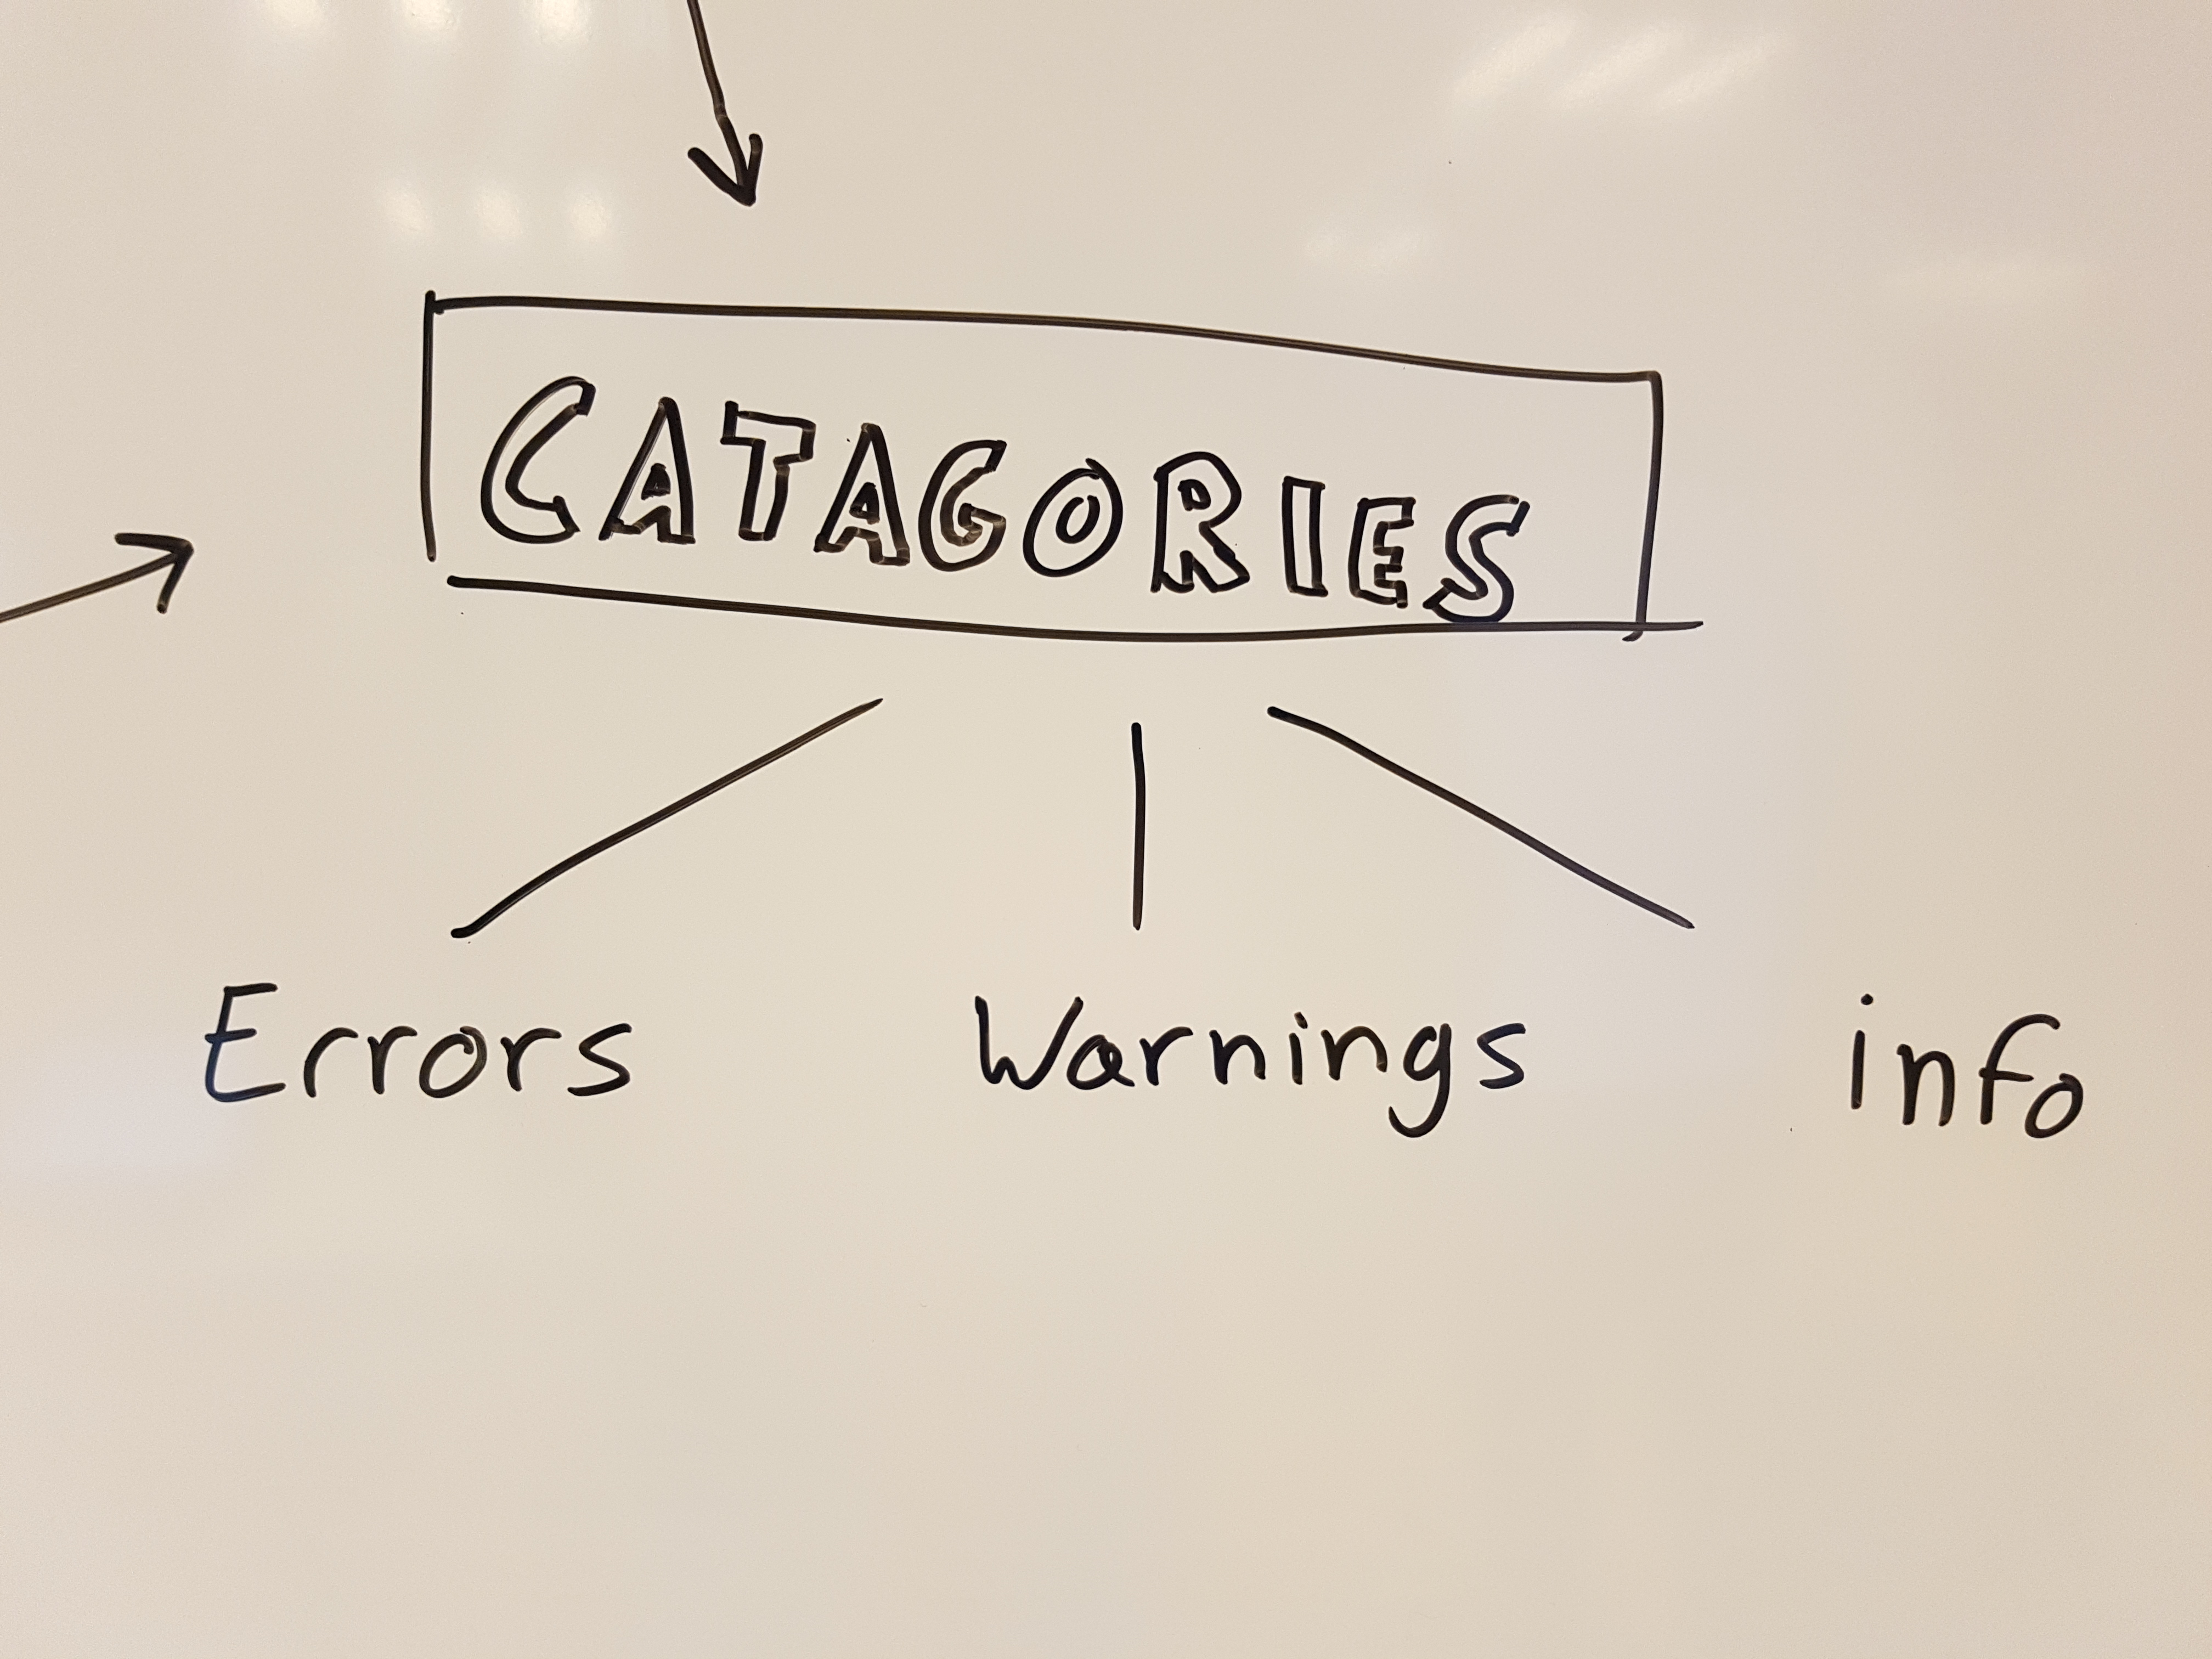 CATAGORIES
Errors Warnings info